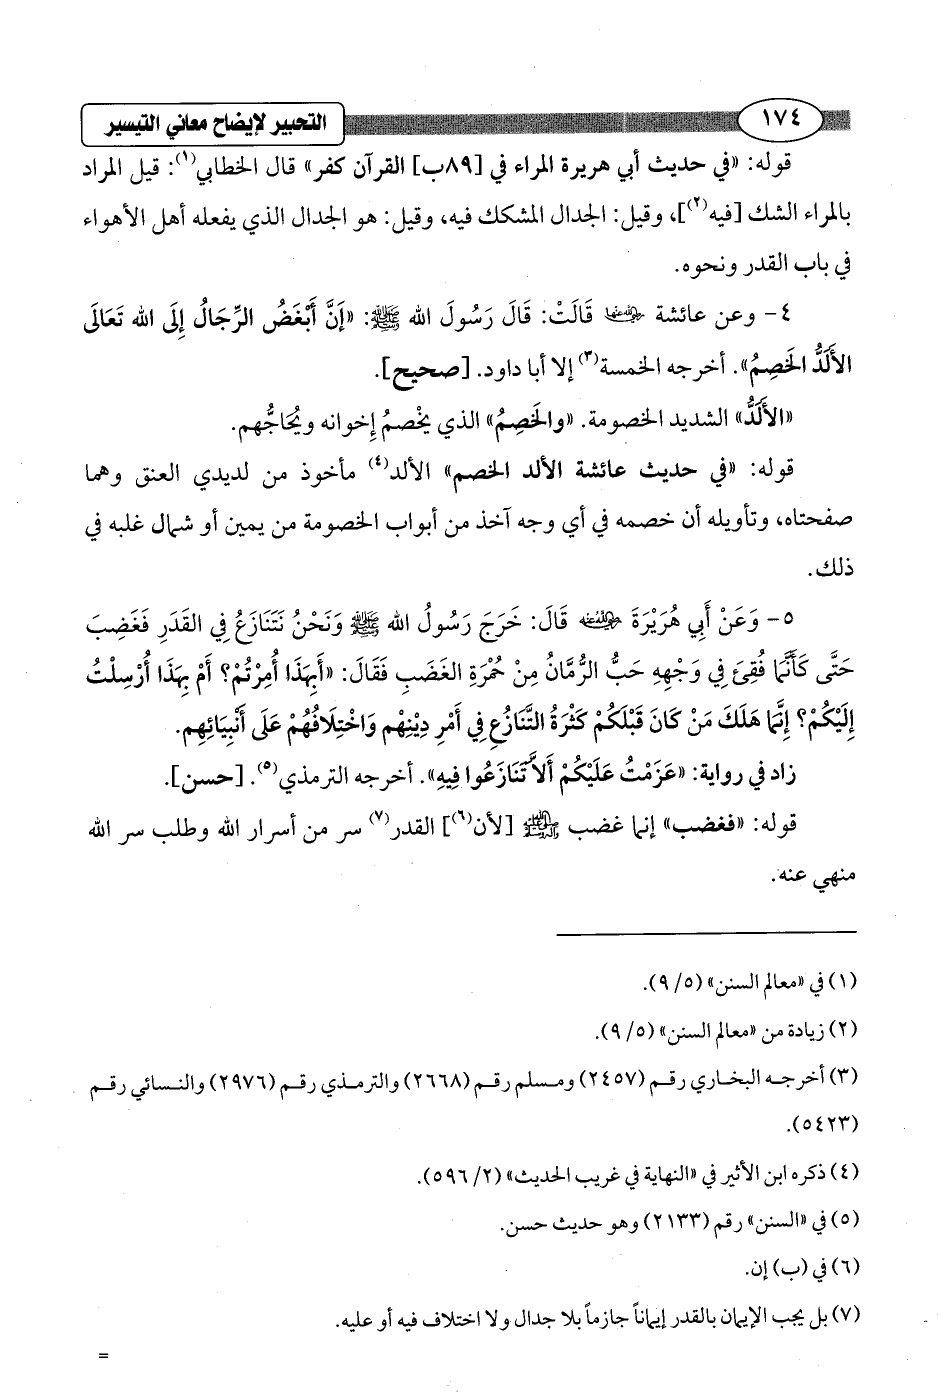 ١٧٤
التحبير لإيضاح معاني التيسير
قوله: «في حديث أبي هريرة المراء في [٨٩ب] القرآن كفر» قال الخطابي(١): قيل المراد
بالمراء الشك [فيه(٢)]، وقيل: الجدال المشكك فيه، وقيل: هو الجدال الذي يفعله أهل الأهواء
في باب القدر ونحوه.
٤- وعن عائشة رضي الله عنها قَالَتْ: قَالَ رَسُولَ الله ﷺ: «إِنَّ أَبْغَضُ الرِّجَالُ إِلَى الله تَعَالَى
الأَلَدُّ الخَصِمُ». أخرجه الخمسة(٣) إلا أبا داود. [صحيح].
«الأَلَدُّ» الشديد الخصومة. «والخَصِمُ» الذي يخْصمُ إخوانه ويُحَاجُّهم.
قوله: «في حديث عائشة الألد الخصم» الألد(٤) مأخوذ من لديدي العنق وهما
صفحتاه، وتأويله أن خصمه في أي وجه آخذ من أبواب الخصومة من يمين أو شمال غلبه في
ذلك.
٥- وَعَنْ أَبِي هُرَيْرَةَ رضي الله عنه قَالَ: خَرَجَ رَسُولُ الله ﷺ وَنَحْنُ نَتَنَازَعُ فِي القَدَرِ فَغَضِبَ
حَتَّى كَأَنَّمَا فُقِئَ فِي وَجْهِهِ حَبُّ الرُّمَّانِ مِنْ حُمْرَةِ الغَضَبِ فَقَالَ: «أَبِهَذَا أُمِرْتُمْ؟ أَمْ بِهَذَا أُرْسِلْتُ
إِلَيْكُمْ؟ إِنَّمَا هَلَكَ مَنْ كَانَ قَبْلَكُمْ كَثْرَةُ التَّنَازُعِ فِي أَمْرِ دِيْنِهْم وَاخْتِلَافُهُمْ عَلَى أَنْبِيَائِهِم.
زاد في رواية: «عَزَمْتُ عَلَيْكُمْ أَلاَّ تَنَازَعُوا فِيهِ». أخرجه الترمذي(٥). [حسن].
قوله: «فغضب» إنما غضب ﷺ [لأن(٦)] القدر(٧) سر من أسرار الله وطلب سر الله
منهي عنه.
(١) في «معالم السنن» (٥/ ٩).
(٢) زيادة من «معالم السنن» (٥/ ٩).
(٣) أخرجه البخاري رقم (٢٤٥٧) ومسلم رقم (٢٦٦٨) والترمذي رقم (٢٩٧٦) والنسائي رقم
(٥٤٢٣).
(٤) ذكره ابن الأثير في «النهاية في غريب الحديث» (٢/ ٥٩٦).
(٥) في «السنن» رقم (٢١٣٣) وهو حديث حسن.
(٦) في (ب) إن.
(٧) بل يجب الإيمان بالقدر إيماناً جازماً بلا جدال ولا اختلاف فيه أو عليه.
=